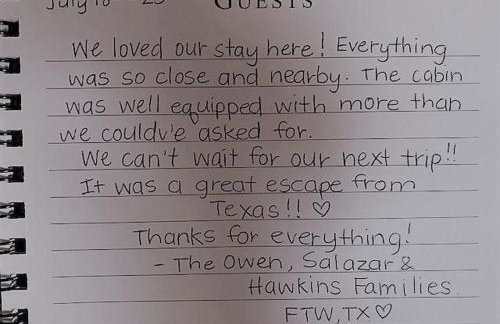 July 18 - 23 GUESTS
We loved our stay here! Everything
was so close and nearby. The cabin
was well equipped with more than
we couldv'e asked for.
We can't wait for our next trip!!
It was a great escape from
Texas!! ♡
Thanks for everything!
- The Owen, Salazar &
Hawkins Families.
FTW, TX ♡